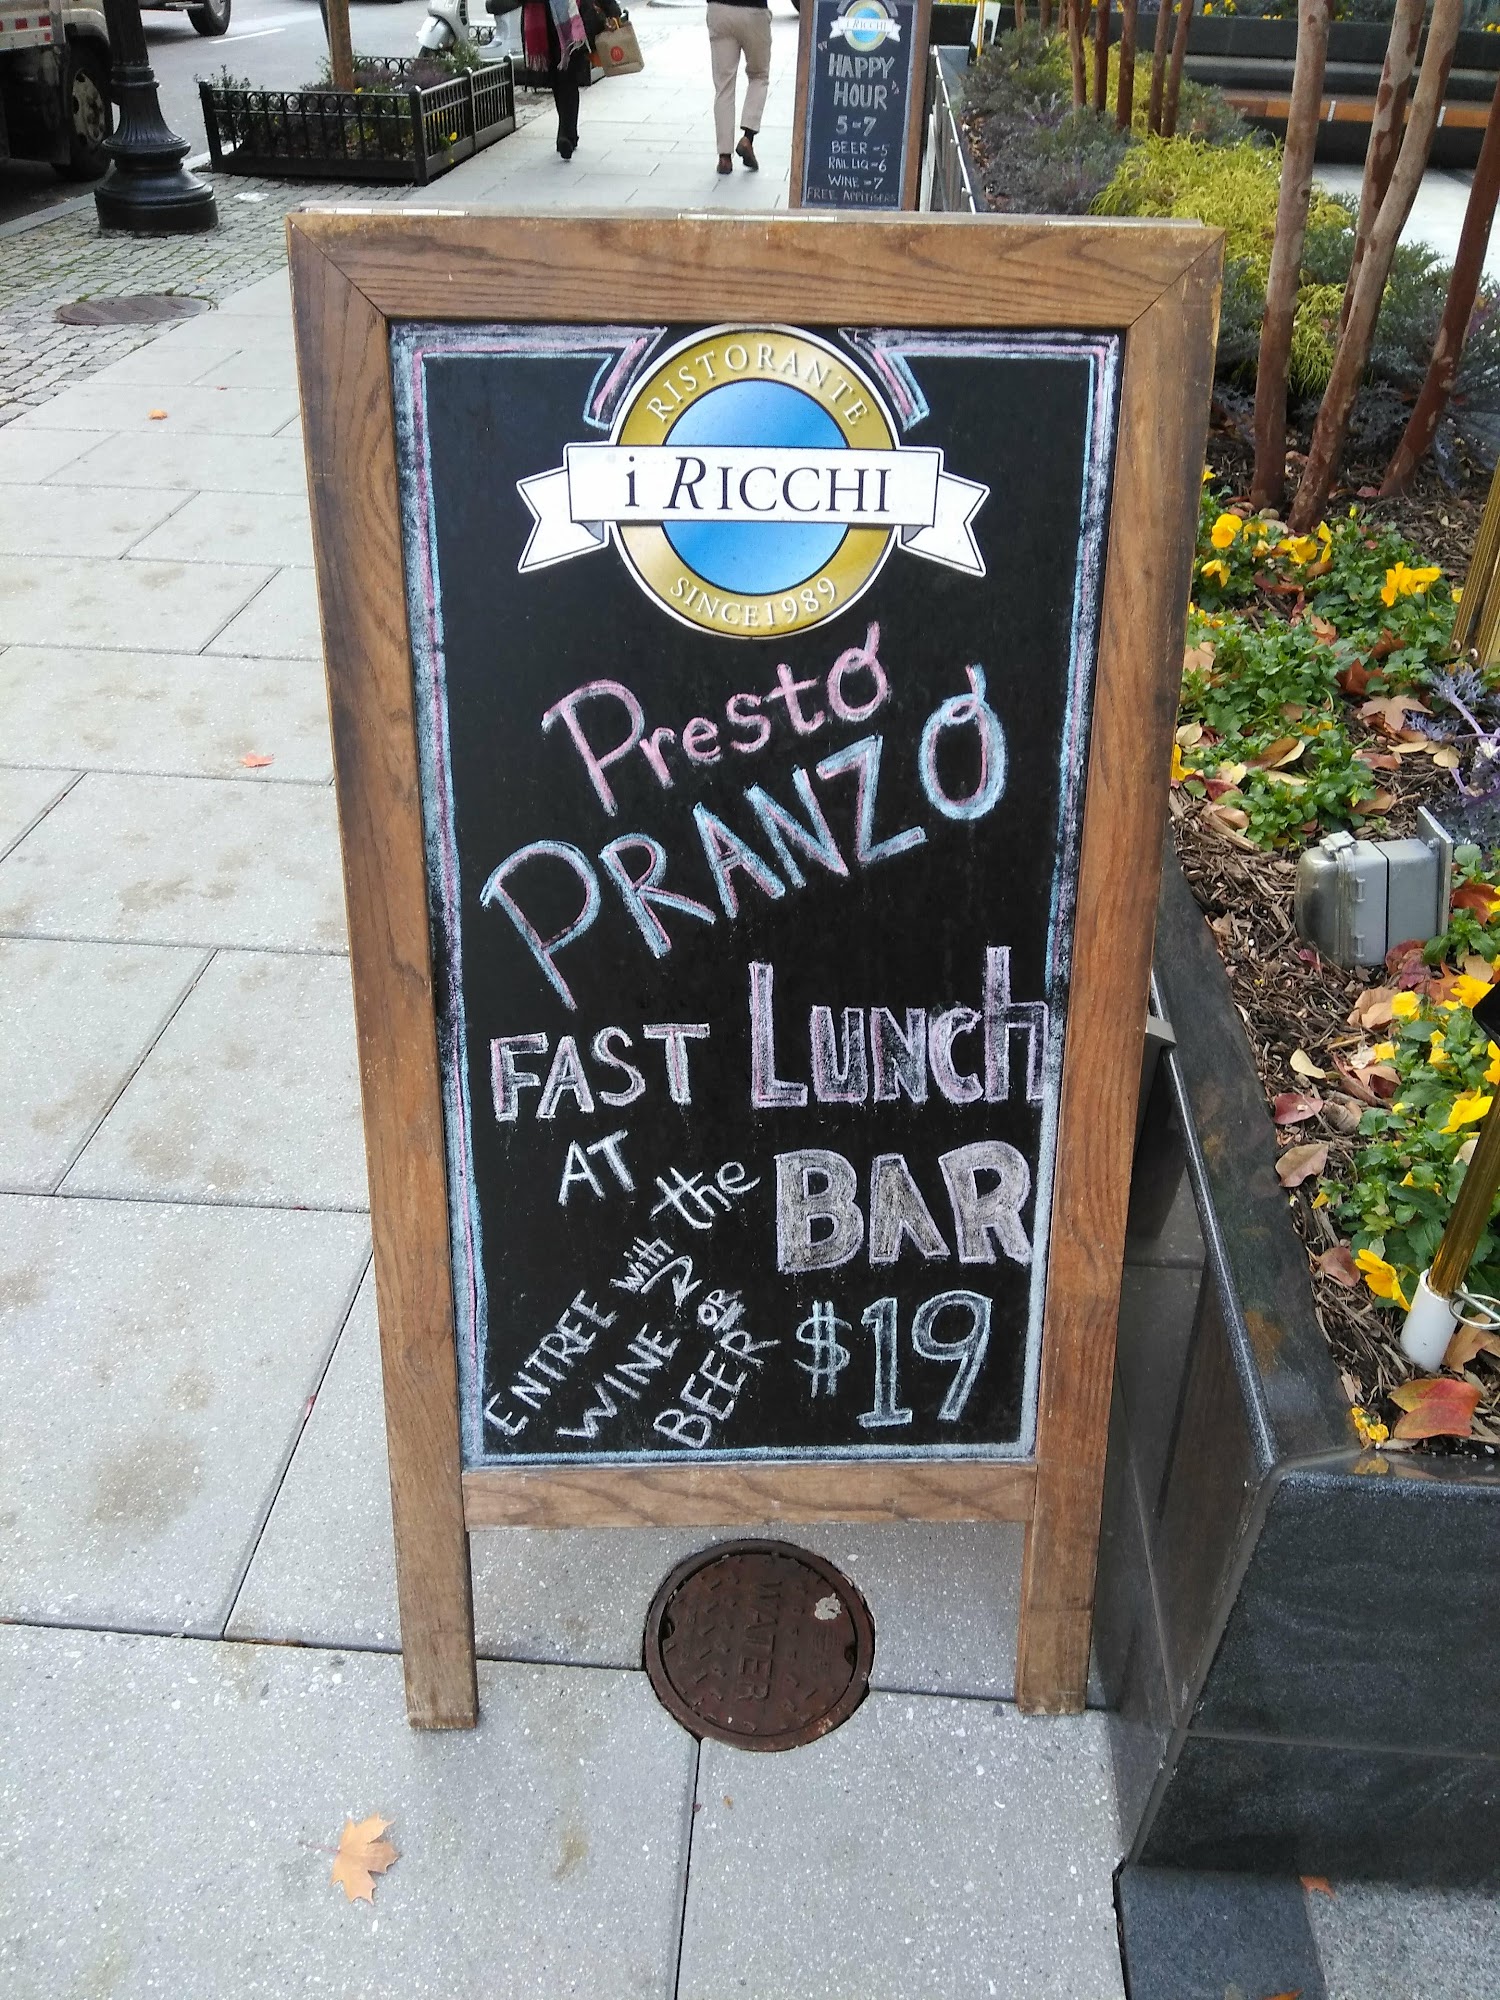 i RICCHI
"HAPPY
HOUR"
5-7
BEER -5
RAIL LIQ -6
WINE -7
FREE APPITISERS
RISTORANTE
i RICCHI
SINCE 1989
Presto
PRANZO
FAST LUNCH
AT the BAR
ENTREE with
WINE OR
BEER
$19
WATER